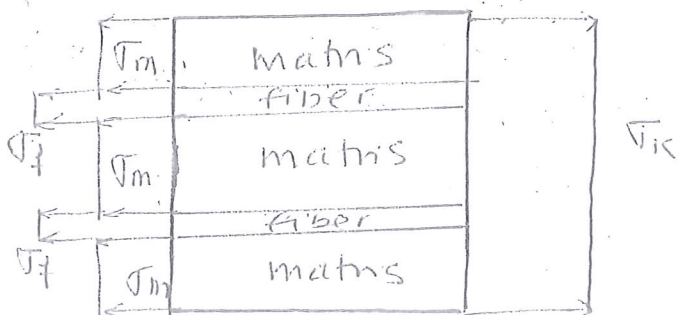 σm matriks
fiber
σf σm matriks σk
fiber
σf σm matriks